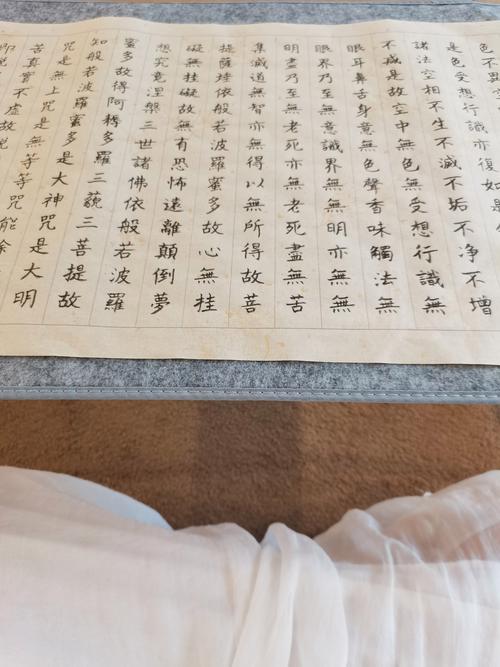 色不異空
是色受想行識亦復如是舍
諸法空相不生不滅不垢不净不增
不減是故空中無色無受想行識無
眼耳鼻舌身意無色聲香味觸法無
眼界乃至無意識界無無明亦無無
明盡乃至無老死亦無老死盡無苦
集滅道無智亦無得以無所得故菩
提薩埵依般若波羅蜜多故心無桂
礙無桂礙故無有恐怖遠離顛倒夢
想究竟涅槃三世諸佛依般若波羅
蜜多故得阿耨多羅三藐三菩提故
知般若波羅蜜多是大神咒是大明
咒是無上咒是無等等咒能除
苦真實不虛故說
即說